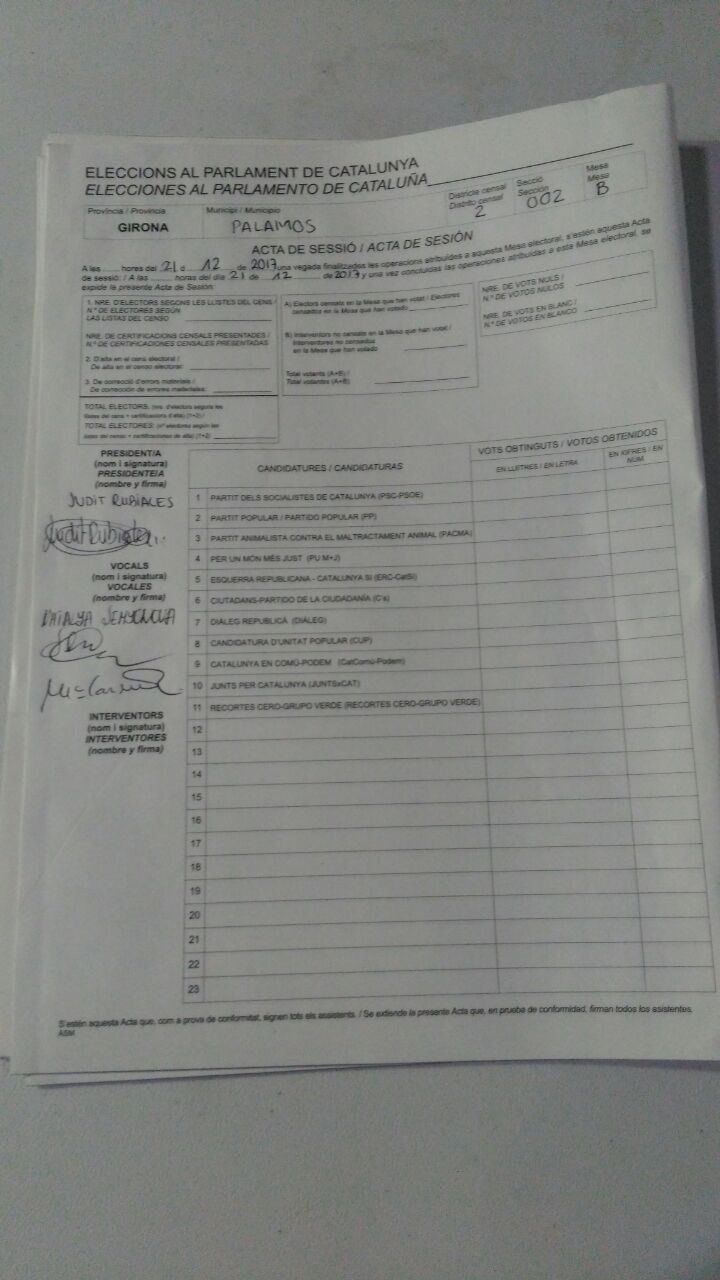 ELECCIONS AL PARLAMENT DE CATALUNYA
ELECCIONES AL PARLAMENTO DE CATALUÑA
Província / Provincia
GIRONA
Municipi / Municipio
PALAMOS
Districte censal
Distrito censal
2
Secció
Sección
002
Mesa
Mesa
B
ACTA DE SESSIÓ / ACTA DE SESIÓN
A les ........ hores del 21 d ... 12 ... de 2017, una vegada finalitzades les operacions atribuïdes a aquesta Mesa electoral, s'estén aquesta Acta
de sessió: / A las ........ horas del día 21 de ... 12 ... de 2017 y una vez concluidas las operaciones atribuidas a esta Mesa electoral, se
expide la presente Acta de Sesión:
1. NRE. D'ELECTORS SEGONS LES LLISTES DEL CENS /
N.º DE ELECTORES SEGÚN
LAS LISTAS DEL CENSO
NRE. DE CERTIFICACIONS CENSALS PRESENTADES /
N.º DE CERTIFICACIONES CENSALES PRESENTADAS
2. D'alta en el cens electoral /
De alta en el censo electoral:
3. De correcció d'errors materials /
De corrección de errores materiales:
TOTAL ELECTORS: (nre. d'electors segons les
llistes del cens + certificacions d'alta) (1+2) /
TOTAL ELECTORES: (nº electores según las
listas del censo + certificaciones de alta) (1+2)
A) Electors censats en la Mesa que han votat / Electores
censados en la Mesa que han votado
B) Interventors no censats en la Mesa que han votat /
Interventores no censados
en la Mesa que han votado
Total votants (A+B) /
Total votantes (A+B)
NRE. DE VOTS NULS /
N.º DE VOTOS NULOS
NRE. DE VOTS EN BLANC /
N.º DE VOTOS EN BLANCO
PRESIDENT/A
(nom i signatura)
PRESIDENTE/A
(nombre y firma)
JUDIT RUBIALES
VOCALS
(nom i signatura)
VOCALES
(nombre y firma)
INTERVENTORS
(nom i signatura)
INTERVENTORES
(nombre y firma)
CANDIDATURES / CANDIDATURAS
VOTS OBTINGUTS / VOTOS OBTENIDOS
EN LLETRES / EN LETRA
EN XIFRES / EN NÚM.
1 PARTIT DELS SOCIALISTES DE CATALUNYA (PSC-PSOE)
2 PARTIT POPULAR / PARTIDO POPULAR (PP)
3 PARTIT ANIMALISTA CONTRA EL MALTRACTAMENT ANIMAL (PACMA)
4 PER UN MÓN MÉS JUST (PU M+J)
5 ESQUERRA REPUBLICANA - CATALUNYA SÍ (ERC-CatSí)
6 CIUTADANS-PARTIDO DE LA CIUDADANÍA (C's)
7 DIÀLEG REPUBLICÀ (DIÀLEG)
8 CANDIDATURA D'UNITAT POPULAR (CUP)
9 CATALUNYA EN COMÚ-PODEM (CatComú-Podem)
10 JUNTS PER CATALUNYA (JUNTSxCAT)
11 RECORTES CERO-GRUPO VERDE (RECORTES CERO-GRUPO VERDE)
12
13
14
15
16
17
18
19
20
21
22
23
S'estén aquesta Acta que, com a prova de conformitat, signen tots els assistents. / Se extiende la presente Acta que, en prueba de conformidad, firman todos los asistentes.